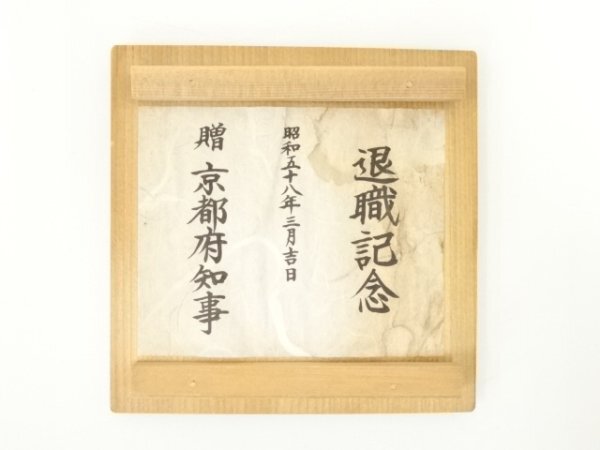 退職記念
昭和五十八年三月吉日
贈 京都府知事